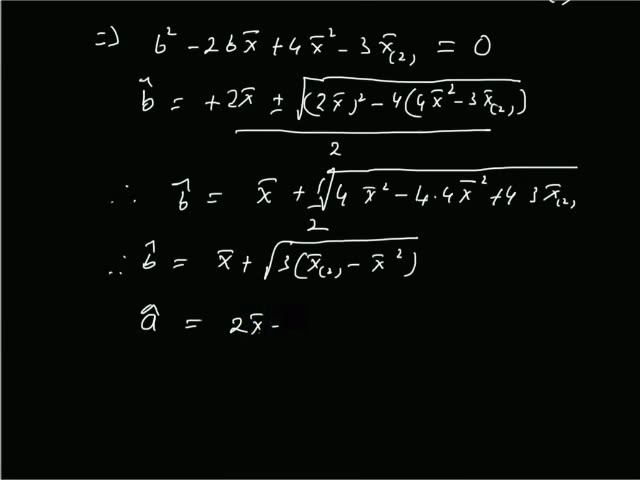 ⇒ b² - 2bx̄ + 4x̄² - 3x̄₍₂₎ = 0
b̂ = +2x̄ ± √((2x̄)² - 4(4x̄² - 3x̄₍₂₎)) / 2
∴ b̂ = x̄ + 1/2 √(4 x̄² - 4·4x̄² + 4 3x̄₍₂₎)
∴ b̂ = x̄ + √(3(x̄₍₂₎ - x̄²))
â = 2x̄ -